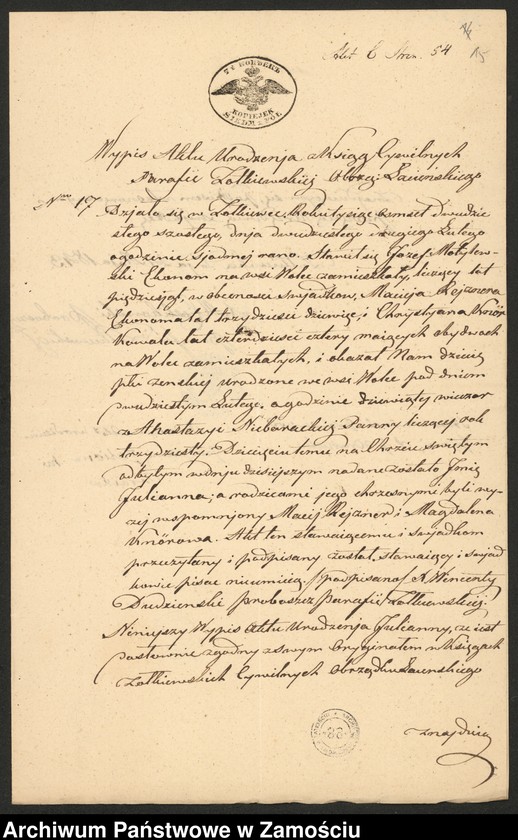 Akt 6 Stron. 54
15
75 KOPIEEKЪ
KOPIEJEK
SIEDM I PÓŁ
Wypis Aktu Urodzenia z Ksiąg Cywilnych
Parafii Żołkiewskiej Obrząd: Łacińskiego
Nro 17 Działo się w Żołkiewce, Roku tysiąc ośmset dwudzie
stego szóstego, dnia dwudziestego Lutego
o godzinie siódmej rano. Stawił się Józef Motylew-
ski Ekonom na wsi Wolce zamieszkały, liczący lat
pięćdziesiąt, w obecności Świadków, Macieja Rejznera
Ekonoma lat trzydzieści dziewięć, i Chrystyana Knörr
Kowala lat czterdzieści cztery maiących obydwóch
na Wolce zamieszkałych, i okazał Nam dziecię
płci żenskiej urodzone we wsi Wolce pod dniem
dwudziestym Lutego, o godzinie dziewiątej wieczor
z Anastazyi Nieborackiej Panny liczącej rok
trzydziesty. Dziecięciu temu na Chrzcie świętym
odbytym w dniu dzisiejszym nadane zostało Imię
Julianna, a rodzicami jego chrzesnymi byli wy-
żej wspomniony Maciej Rejzner i Magdalena
Knörowa. Akt ten stawaiącemu i świadkom
przeczytany i podpisany został, stawaiący i świad
kowie pisać nieumieią. /podpisano/ X. Wincenty
Dudzienski Proboszcz Parafii Żołkiewskiej.
Niniejszy Wypis Aktu Urodzenia Julianny, że iest
dosłownie zgodny z swym Oryginałem w Księgach
Żołkiewskich Cywilnych Obrządku Łacinskiego
znajduią
Archiwum Państwowe w Zamościu